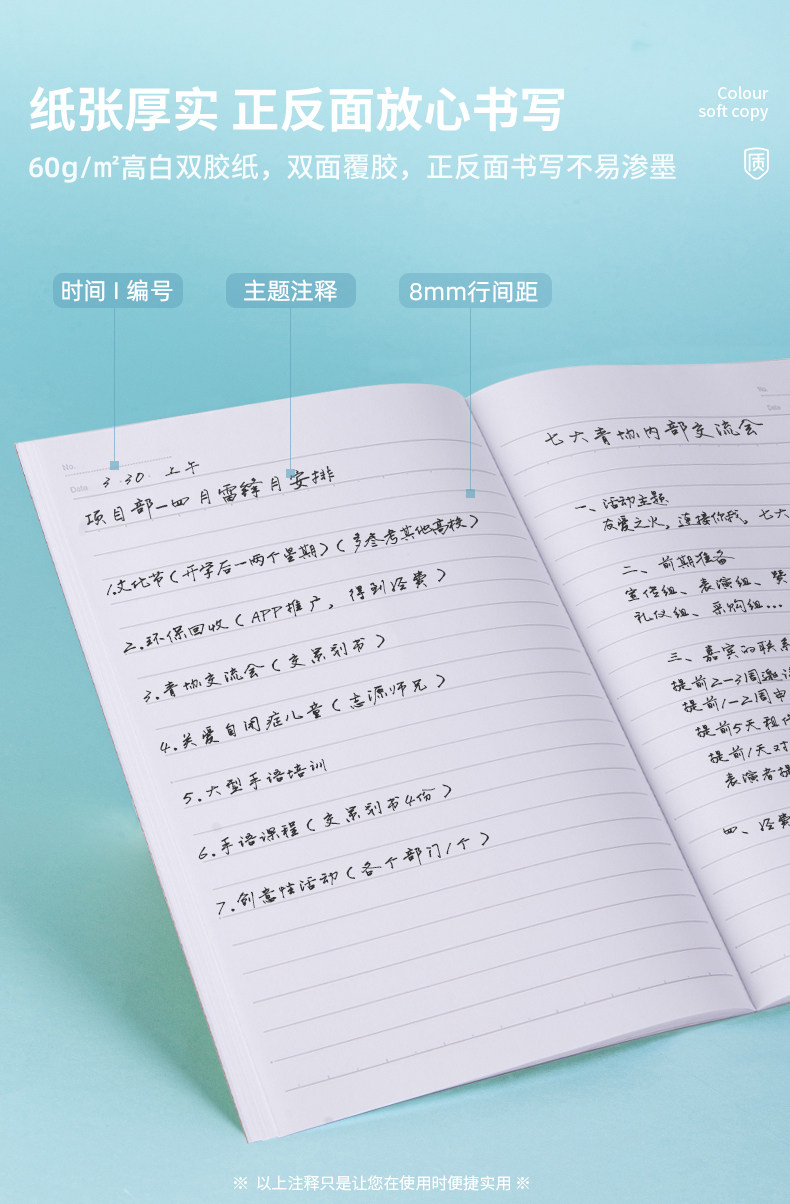 纸张厚实 正反面放心书写
Colour
soft copy
60g/㎡高白双胶纸，双面覆胶，正反面书写不易渗墨
质
时间 | 编号
主题注释
8mm行间距
No.
Date
3.30. 上午
项目部一四月雷锋月安排
1.文化节(开学后一两个星期)(多参考其他高校)
2.环保回收(APP推广，得到经费)
3.青协交流会(交策划书)
4.关爱自闭症儿童(志源师兄)
5.大型手语培训
6.手语课程(交策划书4份)
7.创意性活动(各个部门1个)
No.
Date
七大青协内部交流会
一、活动主题
友爱之火，连接你我，七大
二、前期准备
宣传组、表演组、赞
礼仪组、采购组...
三、嘉宾的联系
提前2-3周邀请
提前1-2周申
提前5天租借
提前1天对
表演者提
四、经费
※ 以上注释只是让您在使用时便捷实用 ※